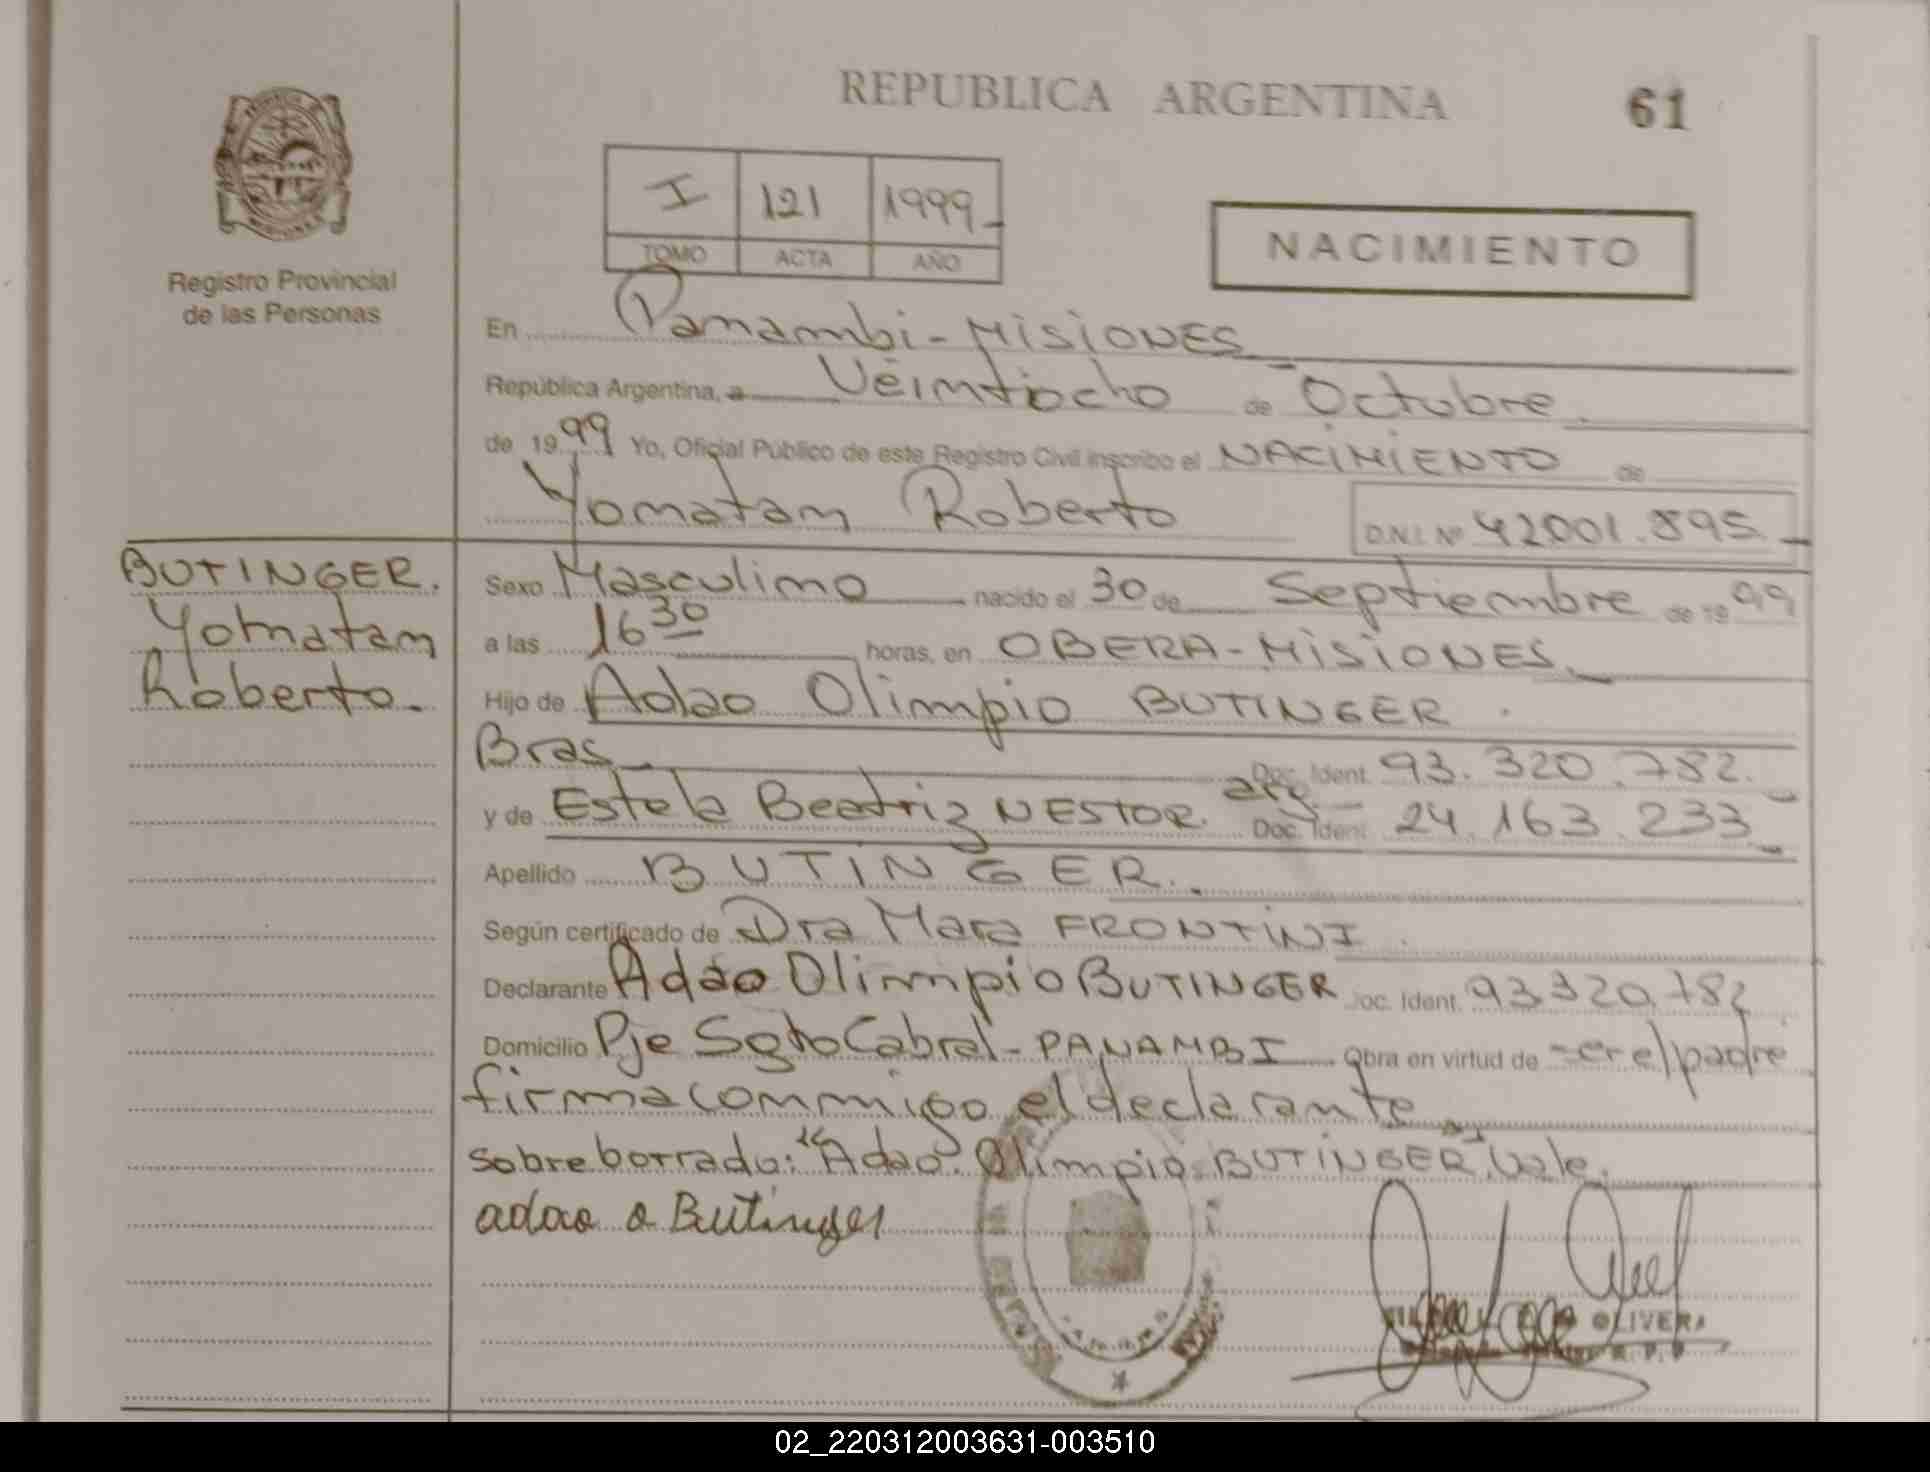 REPUBLICA ARGENTINA
61
I 121 1999
TOMO ACTA AÑO
NACIMIENTO
Registro Provincial
de las Personas
En Panambi - MisiONES
República Argentina, a Veintiocho de Octubre
de 1999 Yo, Oficial Público de este Registro Civil inscribo el NACIMIENTO de
Yomatam Roberto D.N.I. Nº 42001.895
BUTINGER.
Yomatam
Roberto.
Sexo Masculino nacido el 30 de Septiembre de 1999
a las 16 30 horas, en OBERA - MISIONES
Hijo de Adao Olimpio BUTINGER.
Bras Doc. Ident. 93.320.782
y de Estela Beatriz NESTOR. arg Doc. Ident. 24.163.233
Apellido BUTINGER.
Según certificado de Dra Mara FRONTINI.
Declarante Adao Olimpio BUTINGER Doc. Ident. 93320.782
Domicilio Pje Sgto Cabral - PANAMBI Obra en virtud de ser el padre
firma conmigo el declarante
sobreborrado: "Adao Olimpio BUTINGER" Vale.
adao o Butinger
OLIVERA
02_220312003631-003510